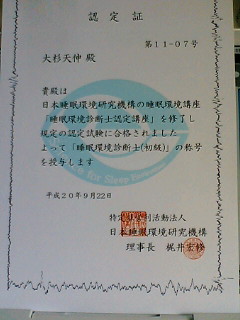 認定証
第11-07号
大杉天伸 殿
貴殿は
日本睡眠環境研究機構の睡眠環境講座
「睡眠環境診断士認定講座」を修了し
規定の認定試験に合格されました
よって「睡眠環境診断士(初級)」の称号
を授与します
平成20年9月22日
特定非営利活動法人
日本睡眠環境研究機構
理事長 梶井宏修
for Sleep Environment